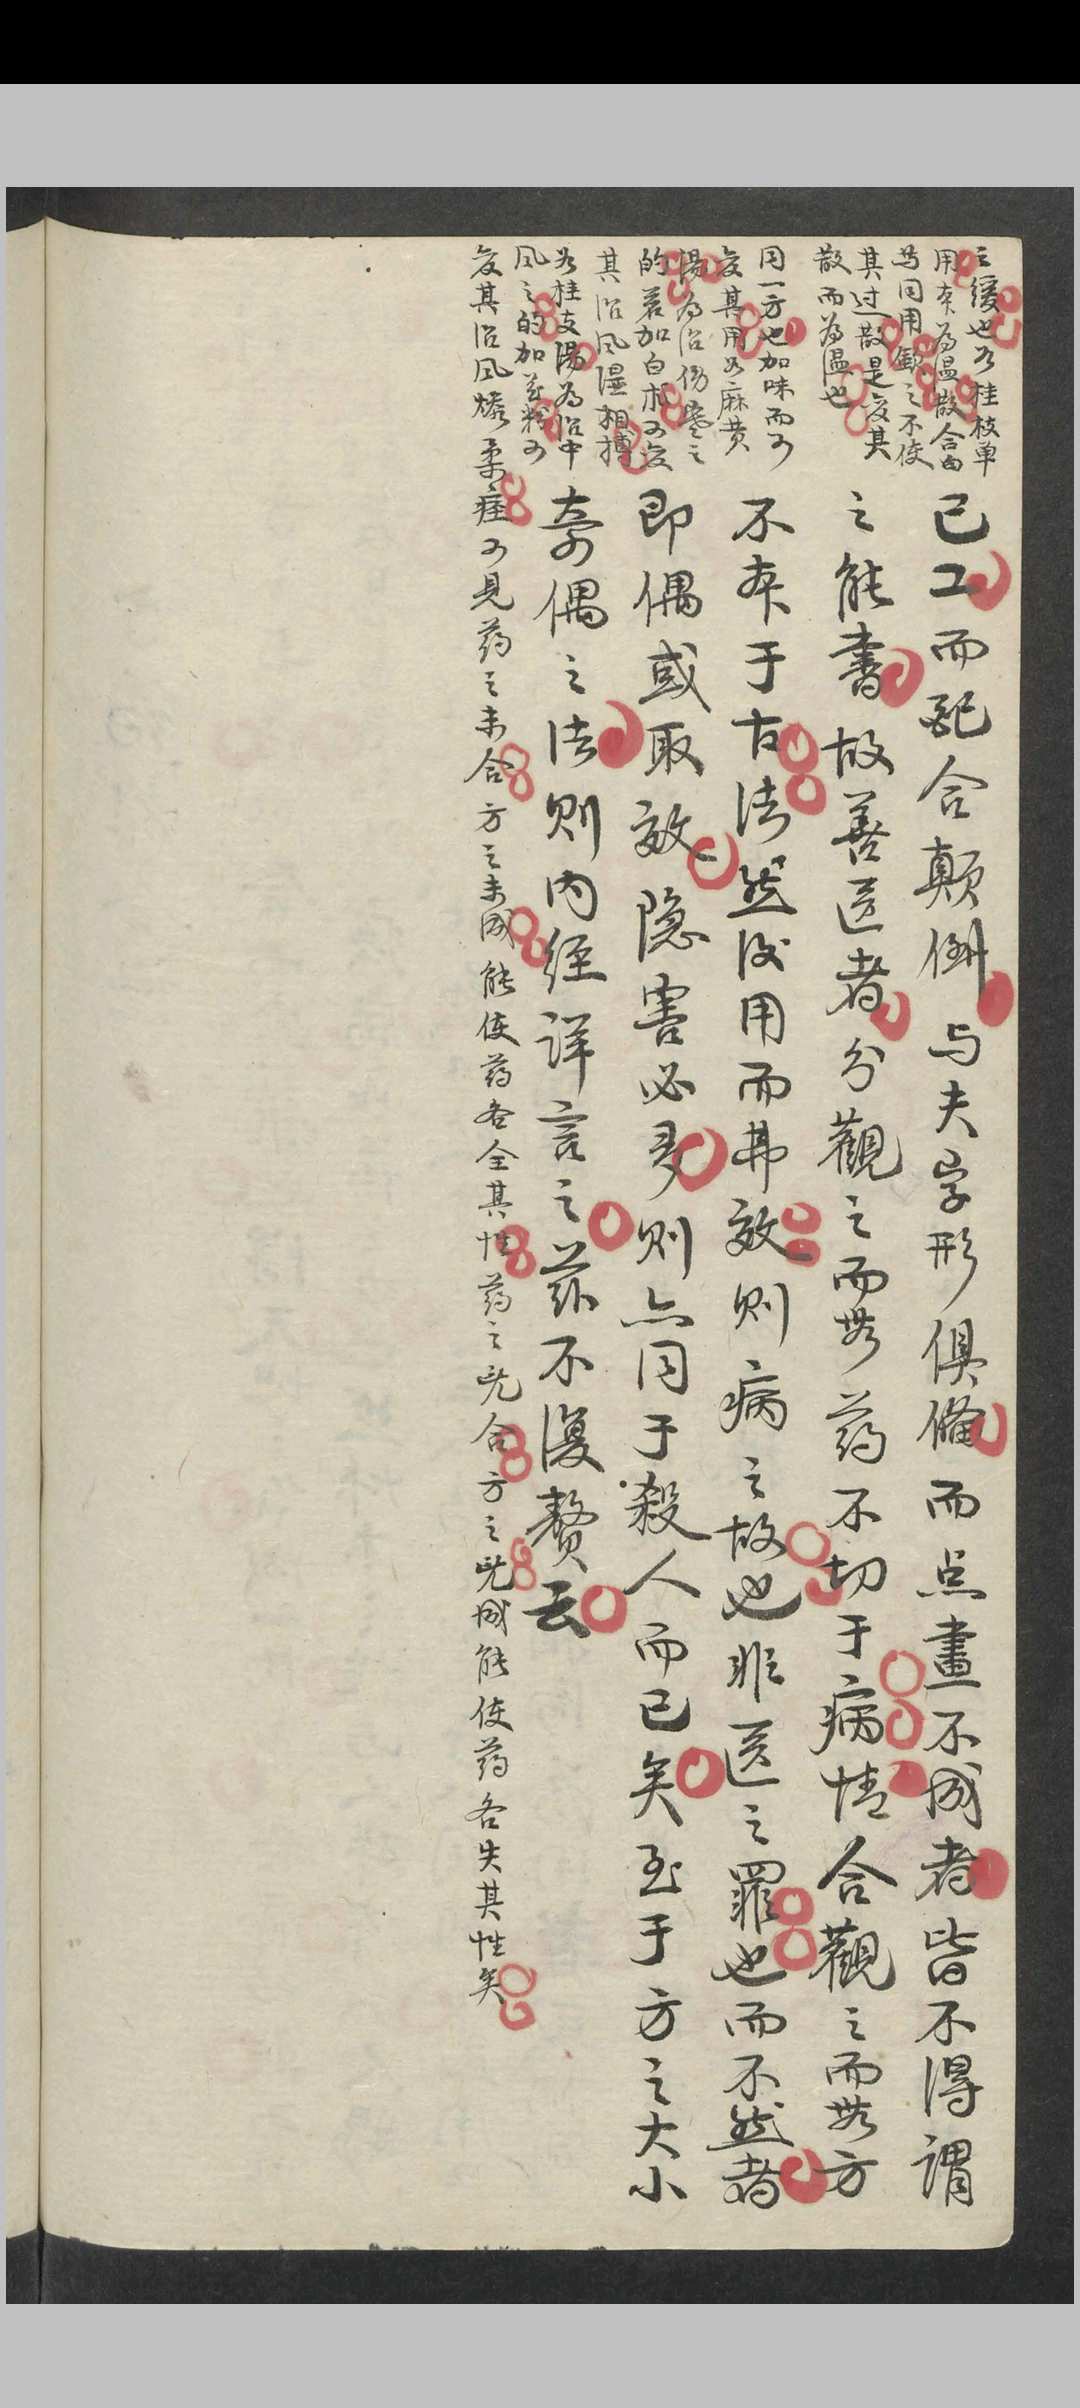 之缓也如桂枝单
用本為温散合白
芍同用斂之不使
其过散是变其
散而為温也
同一方也加味而可
变其用如麻黄
湯為治伤寒之
的若加白朮可变
其治风湿相搏
如桂支湯為治中
风之的加花粉可
变其治风燥柔痓可見药之未合方之未成能使药各全其性药之既合方之既成能使药各失其性矣
已工而配合颠倒与夫字形俱備而点畫不成者皆不得謂
之能書故善医者分觀之而無药不切于病情合觀之而無方
不本于古法然后用而弗效则病之故也非医之罪也而不然者
即偶或取效隐害必多则亦同于殺人而已矣至于方之大小
奇偶之法则内经詳言之兹不復赘云